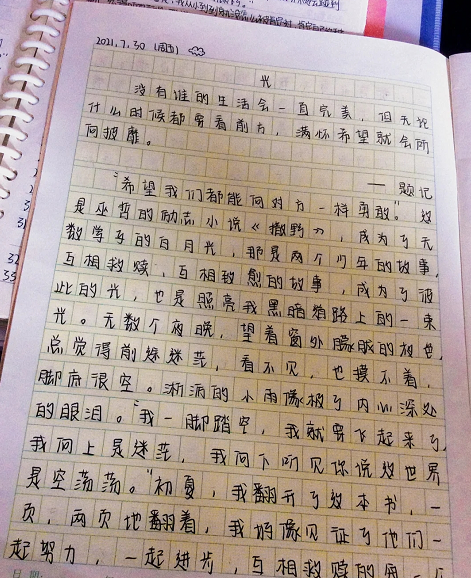 2021.7.30 (周五)
光
没有谁的生活会一直完美，但无论
什么时候都要看前方，满怀希望就会所
向披靡。
——题记
"希望我们都能像对方一样勇敢。"这
是巫哲的励志小说《撒野》，成为了无
数学生的白月光，那是两个少年的故事，
互相救赎，互相救愈的故事，成为了彼
此的光，也是照亮我黑暗道路上的一束
光。无数个夜晚，望着窗外朦胧的夜色，
总觉得前途迷茫，看不见，也摸不着，
脚底很空。淅沥的小雨像极了内心深处
的眼泪。"我一脚踏空，我就要飞起来了，
我向上是迷茫，我向下听见你说这世界
是空荡荡。"初夏，我翻开了这本书，一
页，两页地翻着，我好像见证了他们一
起努力，一起进步，互相救赎的